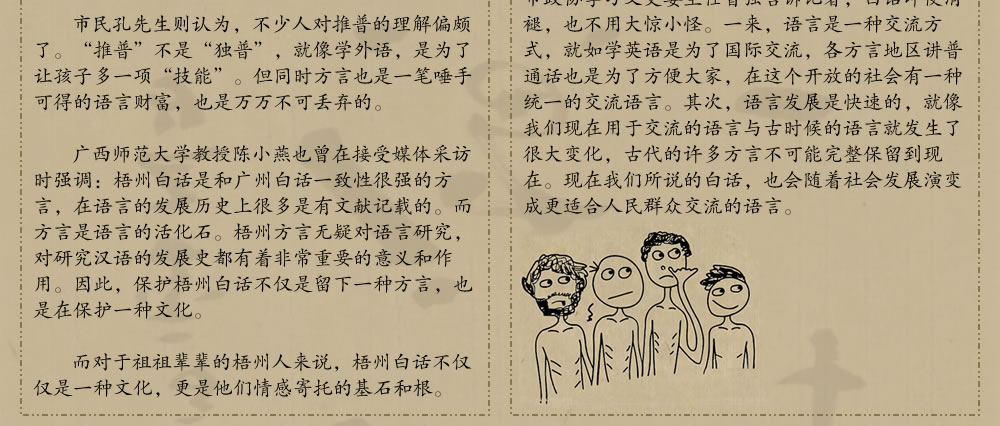 市民孔先生则认为，不少人对推普的理解偏颇
了。“推普”不是“独普”，就像学外语，是为了
让孩子多一项“技能”。但同时方言也是一笔唾手
可得的语言财富，也是万万不可丢弃的。
广西师范大学教授陈小燕也曾在接受媒体采访
时强调：梧州白话是和广州白话一致性很强的方
言，在语言的发展历史上很多是有文献记载的。而
方言是语言的活化石。梧州方言无疑对语言研究，
对研究汉语的发展史都有着非常重要的意义和作
用。因此，保护梧州白话不仅是留下一种方言，也
是在保护一种文化。
而对于祖祖辈辈的梧州人来说，梧州白话不仅
仅是一种文化，更是他们情感寄托的基石和根。
褪，也不用大惊小怪。一来，语言是一种交流方
式，就如学英语是为了国际交流，各方言地区讲普
通话也是为了方便大家，在这个开放的社会有一种
统一的交流语言。其次，语言发展是快速的，就像
我们现在用于交流的语言与古时候的语言就发生了
很大变化，古代的许多方言不可能完整保留到现
在。现在我们所说的白话，也会随着社会发展演变
成更适合人民群众交流的语言。